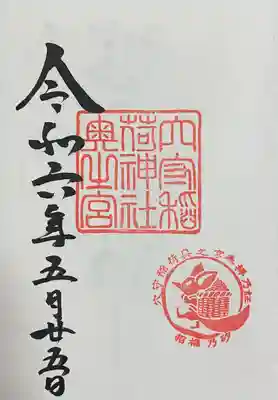 穴守稲
荷神社
奥之宮
穴守稲荷奥之宮
招福乃砂
令和六年五月廿五日